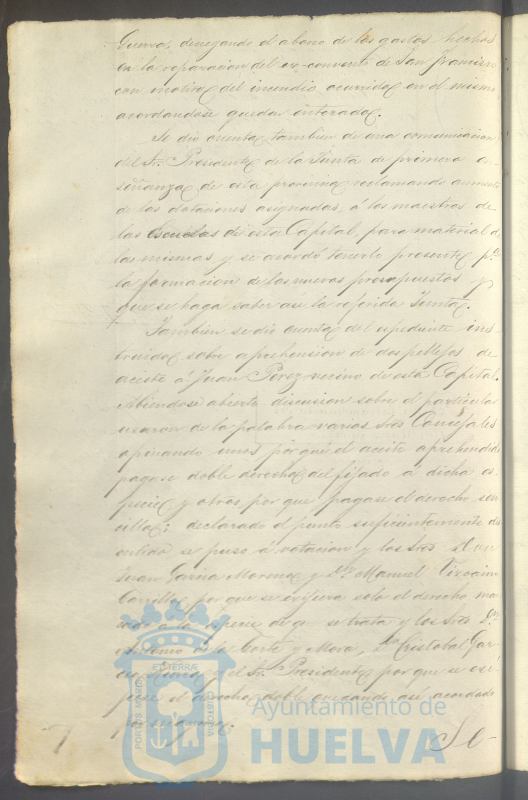 Guerra, denegando el abono de los gastos hechos
en la reparacion del ex-convento de San Francisco
con motivo del incendio ocurrido en el mismo
acordandose quedar enterado.
Se dió cuenta tambien de una comunicacion
del Sr. Presidente de la Junta de primera en-
señanza de esta provincia reclamando aumento
de las dotaciones asignadas, á los maestros de
las escuelas de esta Capital, para material de
las mismas y se acordó tenerlo presente pª
la formacion de los nuevos presupuestos y
que se haga saber asi la referida Junta.
Tambien se dió cuenta del espediente ins
truido sobre aprehension de dos pellejos de
aceite á Juan Perez vecino de esta Capital.
Abiendose abierto discusion sobre el particular
usaron de la palabra varios Sres Concejales
opinando unos porque el aceite aprehendido
pagase doble derecho del fijado á dicha es
pecie y otros por que pagase el derecho sen
cillo; declarado el punto suficientemente dis
cutido se puso á votacion y los Sres Don
Juan Garcia Moreno y Dn Manuel Vizcaino
Carrillo por que se exijiera solo el derecho mar
cado á la especie de q se trata y los Sres Dn
Antonio de la Corte y Mora, Dn Cristobal Gar
cia y el Sr. Presidente por que se exi
jiese el derecho doble quedando asi acordado
por mayoria.
Se
PORTUS MARIS ET TERRÆ CUSTODIA
Ayuntamiento de
HUELVA